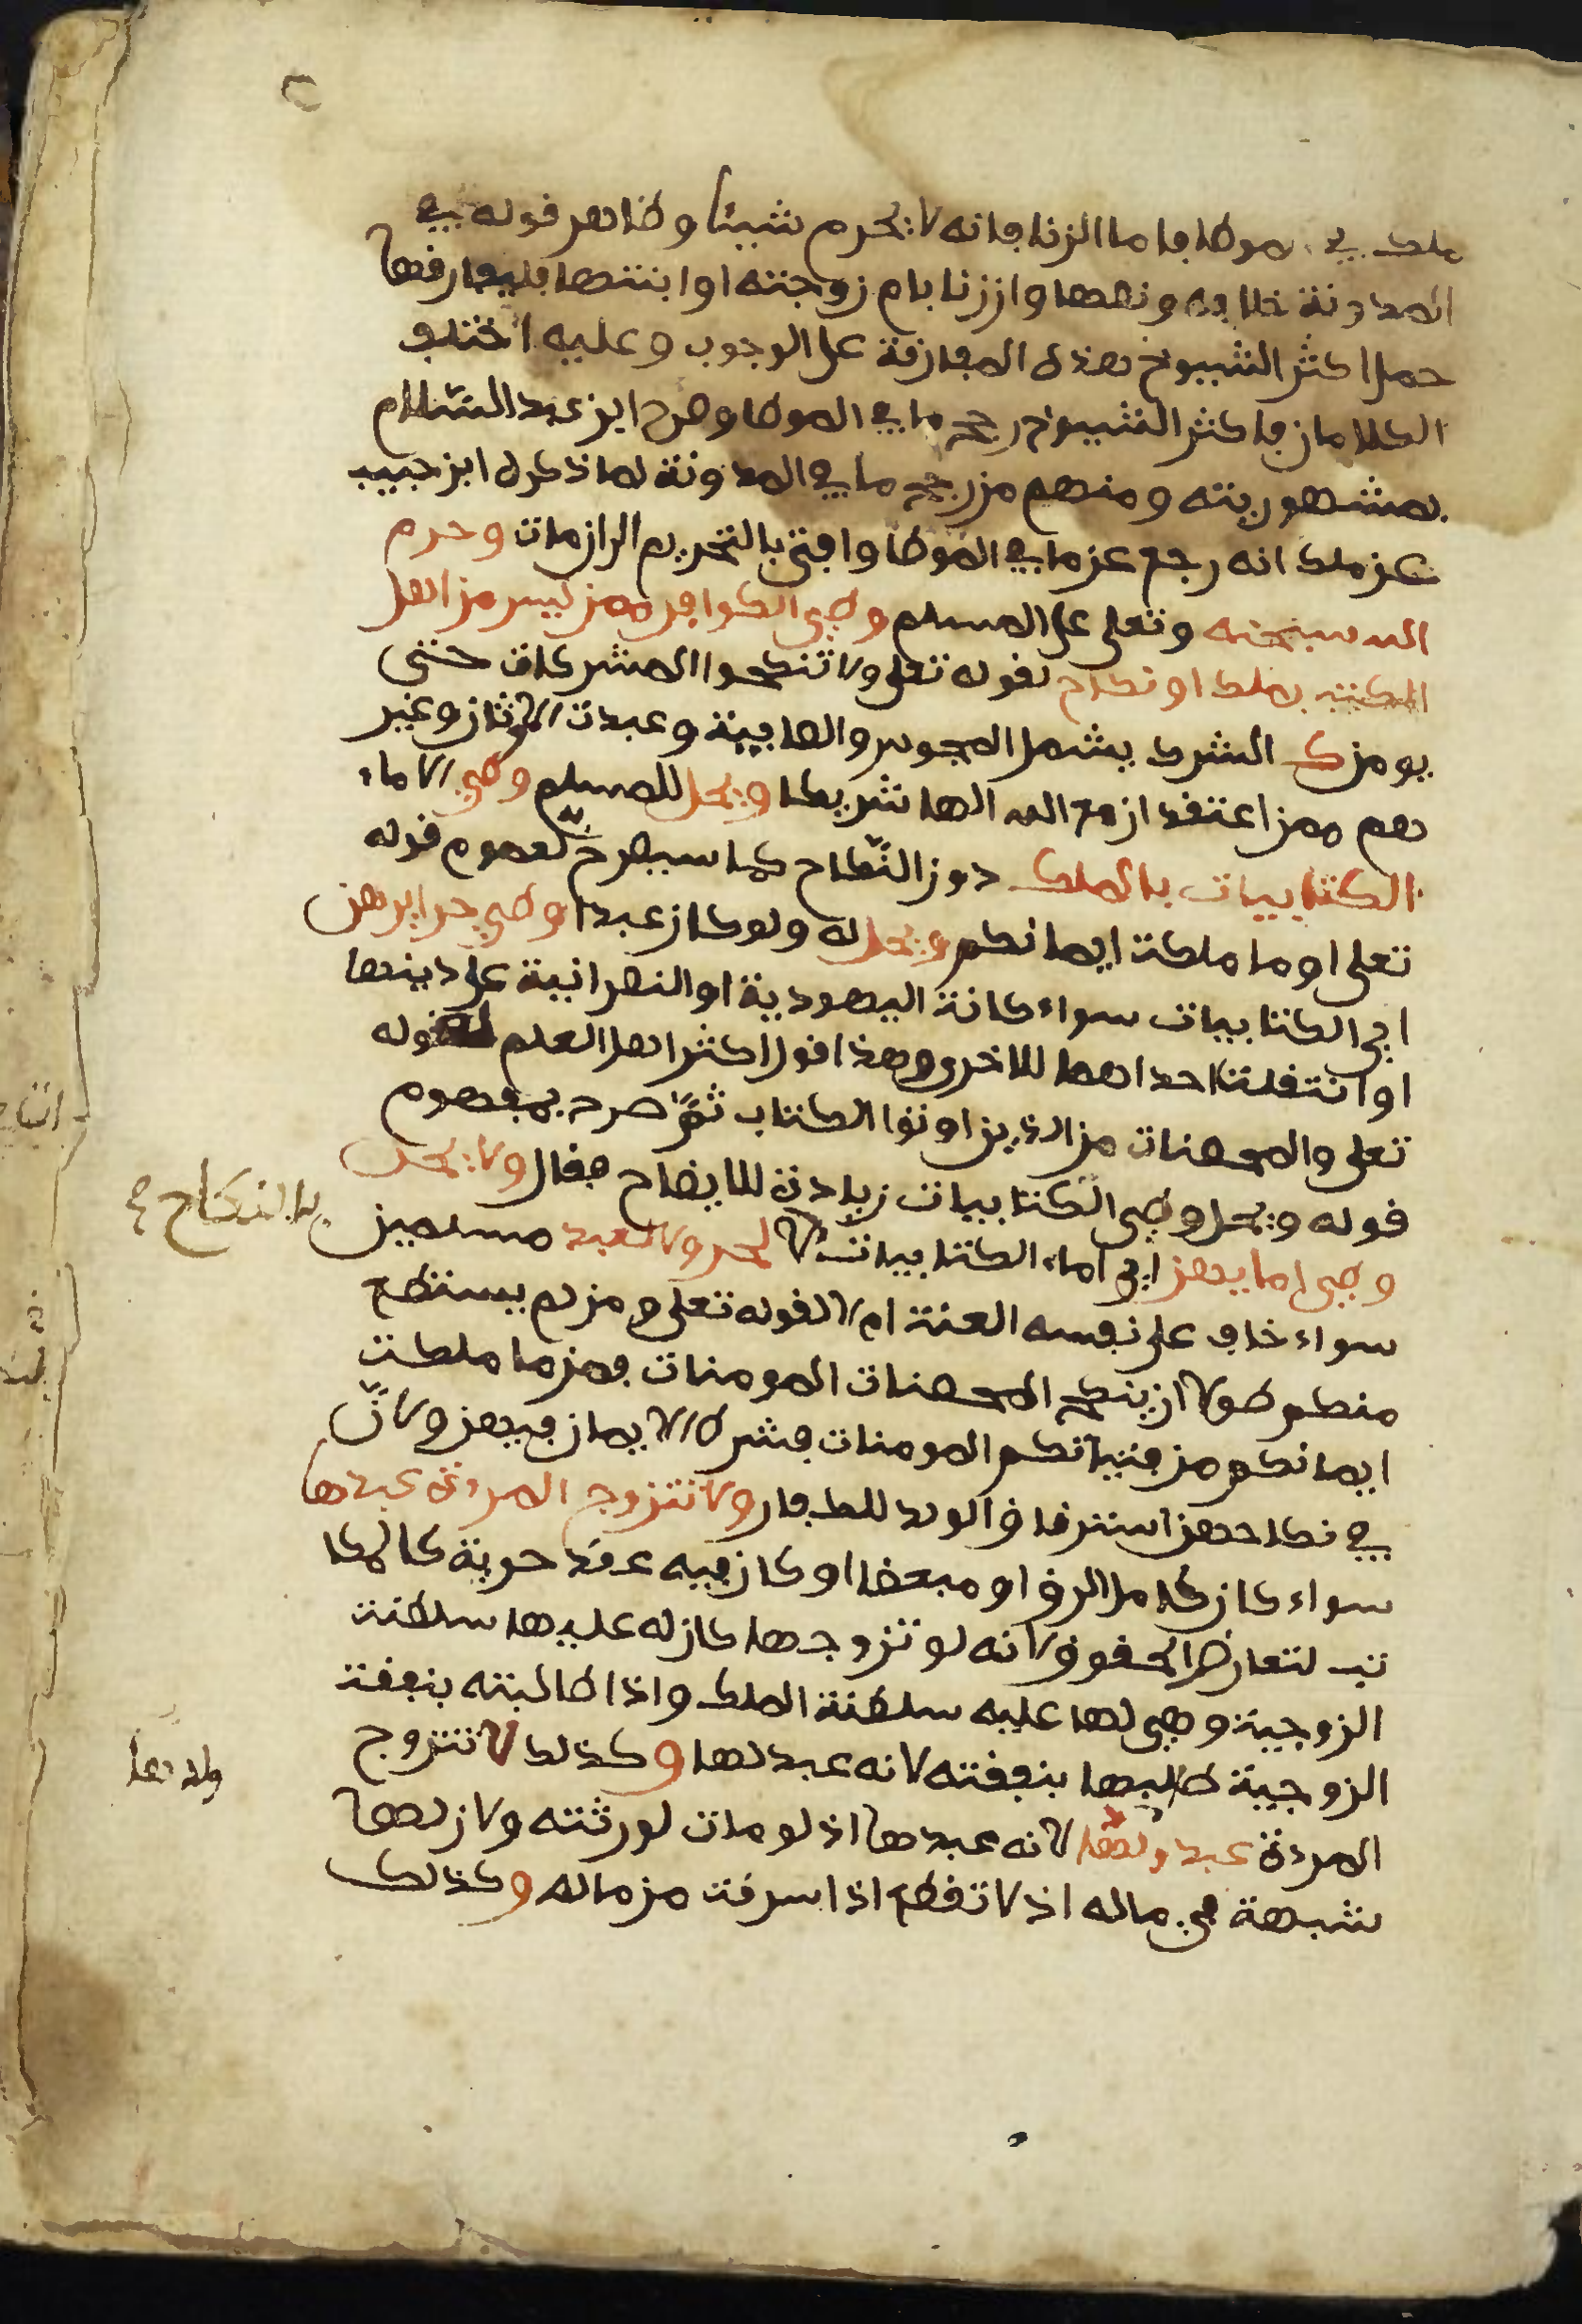 ملك في الموطا فاما الزنا فانه لا يحرم شيئا وظاهر قوله في
المدونة خلافه ونصها وان زنا بام زوجته او ابنتها فليفارقها
حمل اكثر الشيوخ هذه المفارقة على الوجوب وعليه اختلف
الكلامان فاكثر الشيوخ رجح ما في الموطا وصرح ابن عبد السلام
بمشهوريته ومنهم من رجح ما في المدونة لما ذكره ابن حبيب
عن ملك انه رجع عن ما في الموطا وافتى بالتحريم الى ان مات وحرم
الله سبحنه وتعلى على المسلم وطي الكوافر ممن ليس من اهل
الكتب بملك او نكاح لقوله تعلى ولا تنكحوا المشركات حتى
يومن ك الشرك يشمل المجوس والصابية وعبدت الاوثان وغير
هم ممن اعتقد ان مع الله الها شريكا ويحل للمسلم وطي الاماء
الكتابيات بالملك دون النكاح كما سيصرح به لعموم قوله
تعلى او ما ملكت ايمانكم ويحل له ولو كان عبدا وطي حرايرهن
اي الكتابيات سواء كانة اليهودية او النصرانية على دينها
او انتقلت احداهما للاخرى وهذا قول اكثر اهل العلم لقوله
تعلى والمحصنات من الذين اوتوا الكتاب ثم صرح بمفهوم
قوله ويحل وطي الكتابيات زيادة للايضاح فقال ولا يحل
وطي امايهن اي اماء الكتابيات لا لحر ولا لعبد مسلمين
بالنكاح
سواء خاف على نفسه العنت ام لا لقوله تعلى ومن لم يستطع
منكم طولا ان ينكح المحصنات المومنات فمن ما ملكت
ايمانكم من فتياتكم المومنات فشرط الايمان فيهن ولان
في نكاحهن استرقاق الولد للكفار ولا تتزوج المرءة عبدها
سواء كان كامل الرق او مبعضا او كان فيه عقد حرية كالمكا
تب لتعارض الحقوق لانه لو تزوجها كان له عليها سلطنت
الزوجية وهي لها عليه سلطنة الملك واذا طالبته بنفقت
الزوجية طالبها بنفقته لانه عبد لها وكذلك لا تتزوج
المرءة عبد ولدها لانه عبدها اذ لو مات لورثته ولان لها
ولدها
شبهة في ماله اذ لا تقطع اذا سرقت من ماله وكذلك